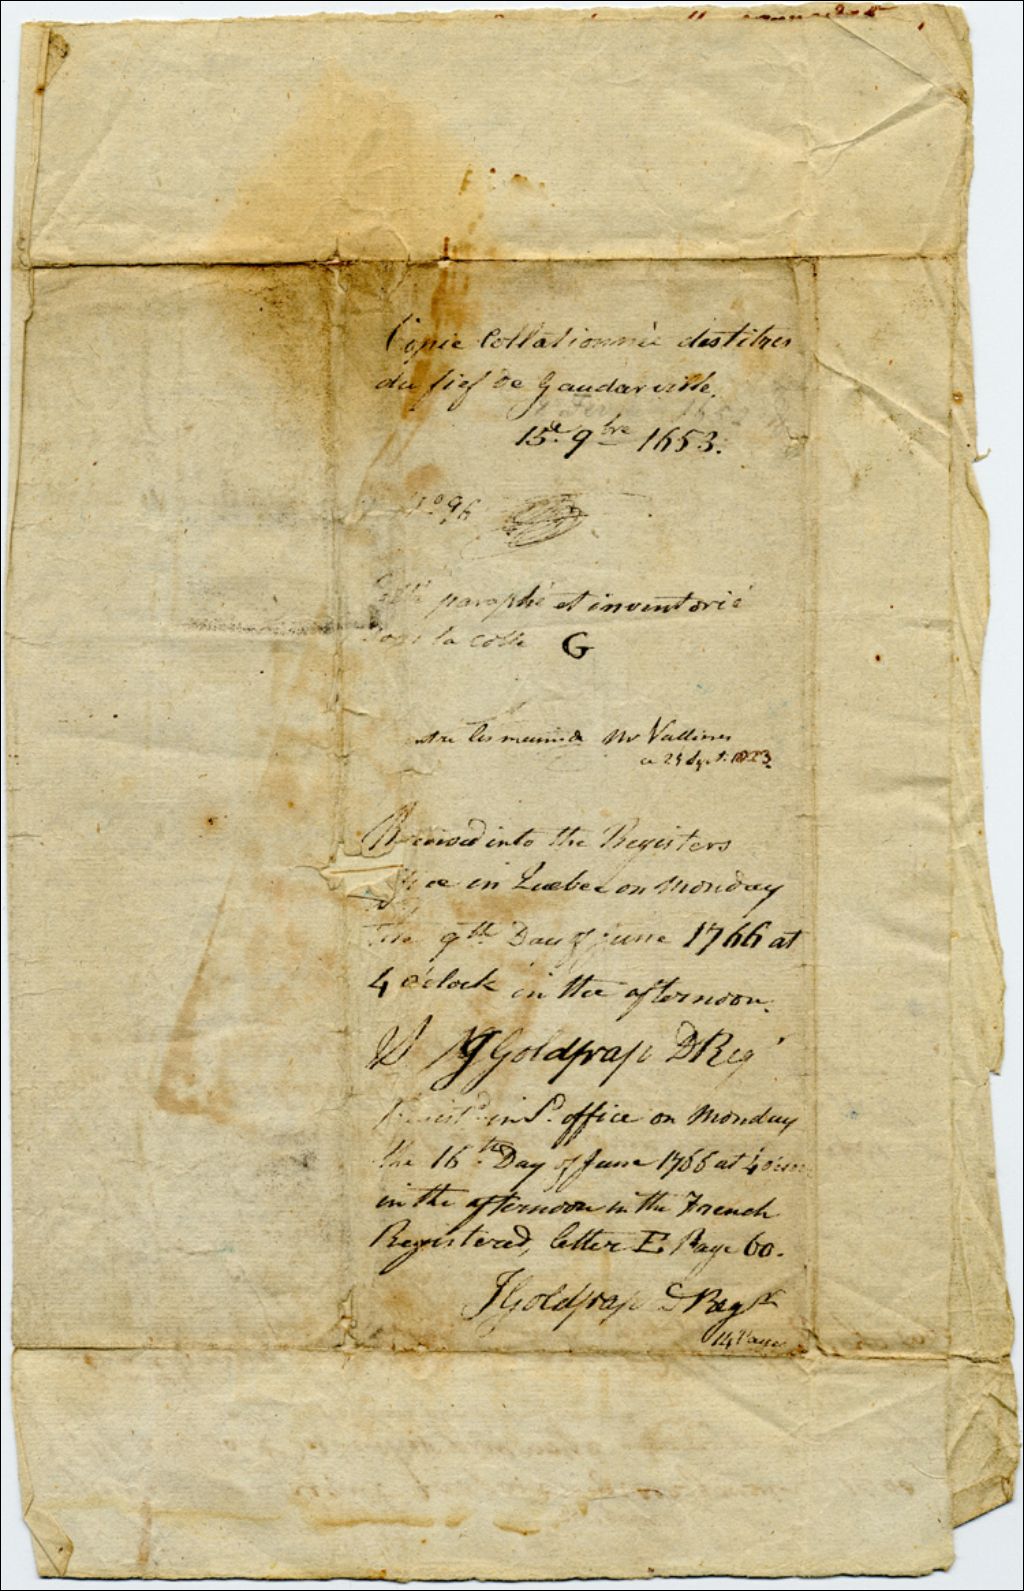 Copie Collationnée des titres
du fief de Gaudarville.
15e. 9bre 1653.
No 96
paraphé et inventorié
la cotte G
entre les mains de Mr Vallieres
ce 25 Sept. 1823.
Received into the Registers
in Quebec on Monday
the 9th Day of June 1766 at
4 o'clock in the afternoon.
JGoldfrap DRegr
in Sd. office on Monday
the 16th Day of June 1766 at 4
in the afternoon in the French
Registered, letter E Page 60.
JGoldfrap DRegr
14 Pages